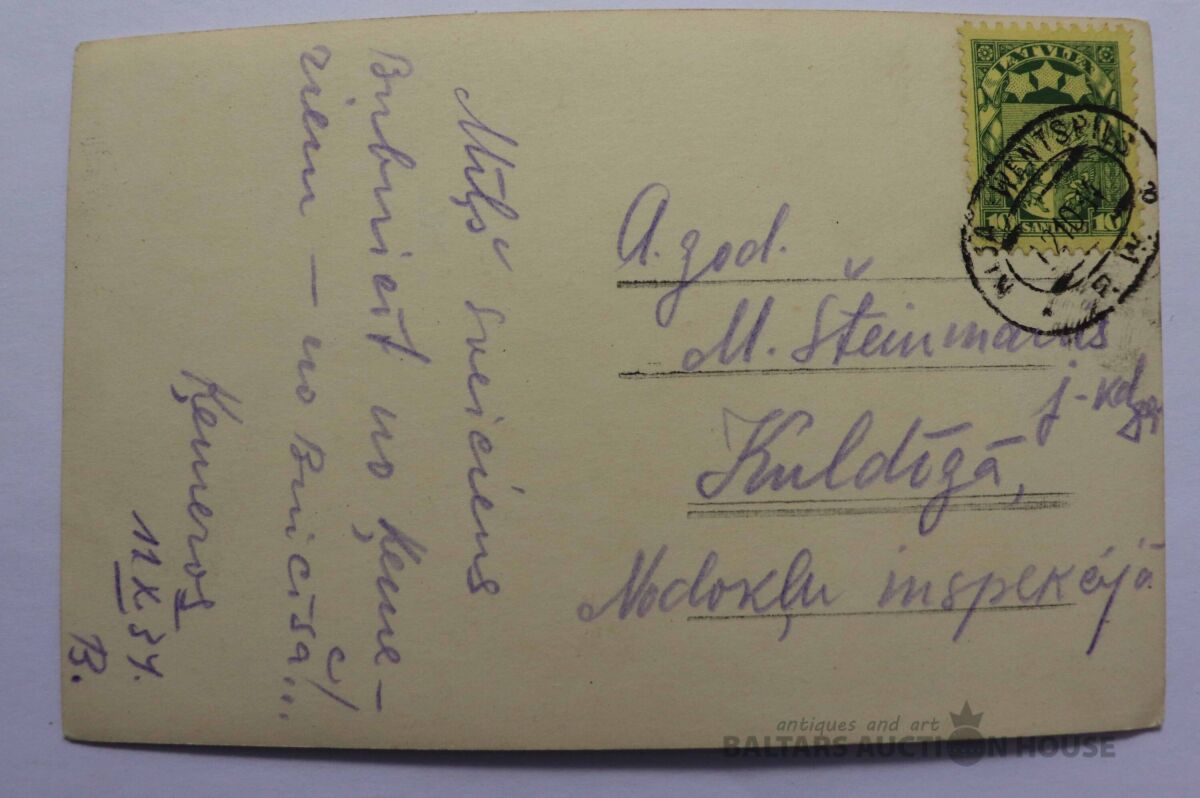 Mīļš sveiciens
Birbnieit no Ķeme-
riem — no Bricīša...
Ķemeros
11 X. 34.
B.
LATVIJA
10 SANTIMU 10
RIGA WENTSPILS
A. god.
M. Šteinmanis
j-kdze
Kuldīgā,
Nodokļu inspekcijā
antiques and art
BALTARS AUCTION HOUSE